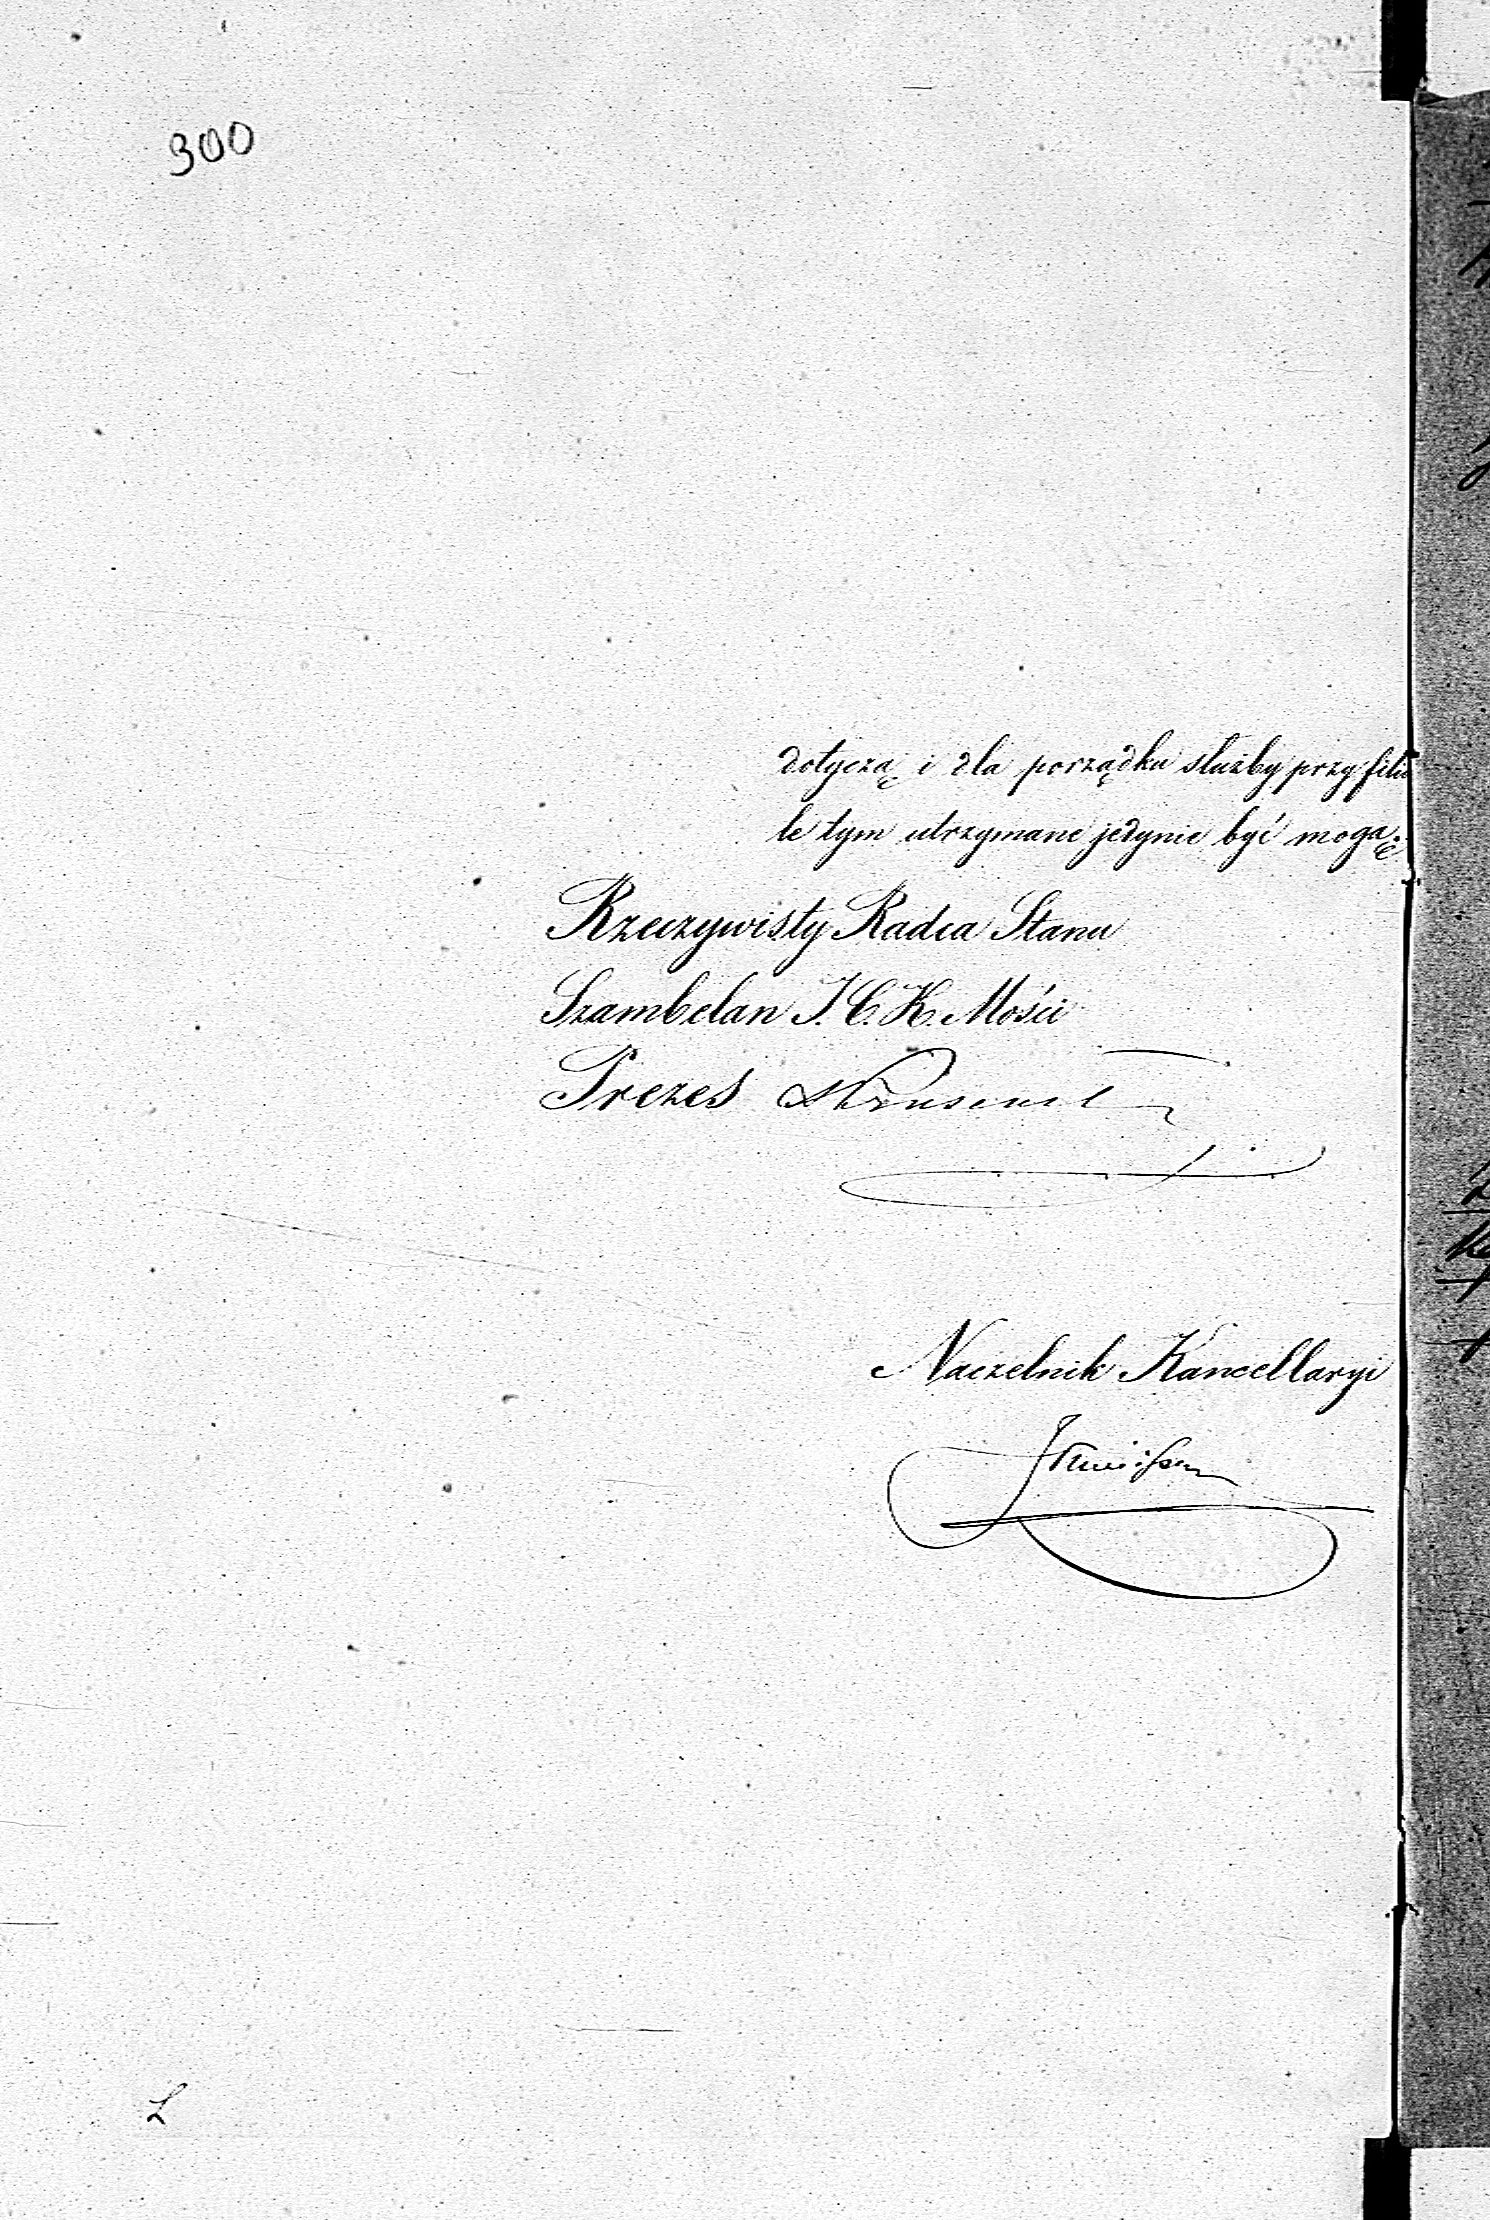 300
dotyczą i dla porządku służby przy filu
le tym utrzymane jedynie być mogą.
Rzeczywisty Radca Stanu
Szambelan J. C. K. Mości
Prezes
Naczelnik Kancellaryi